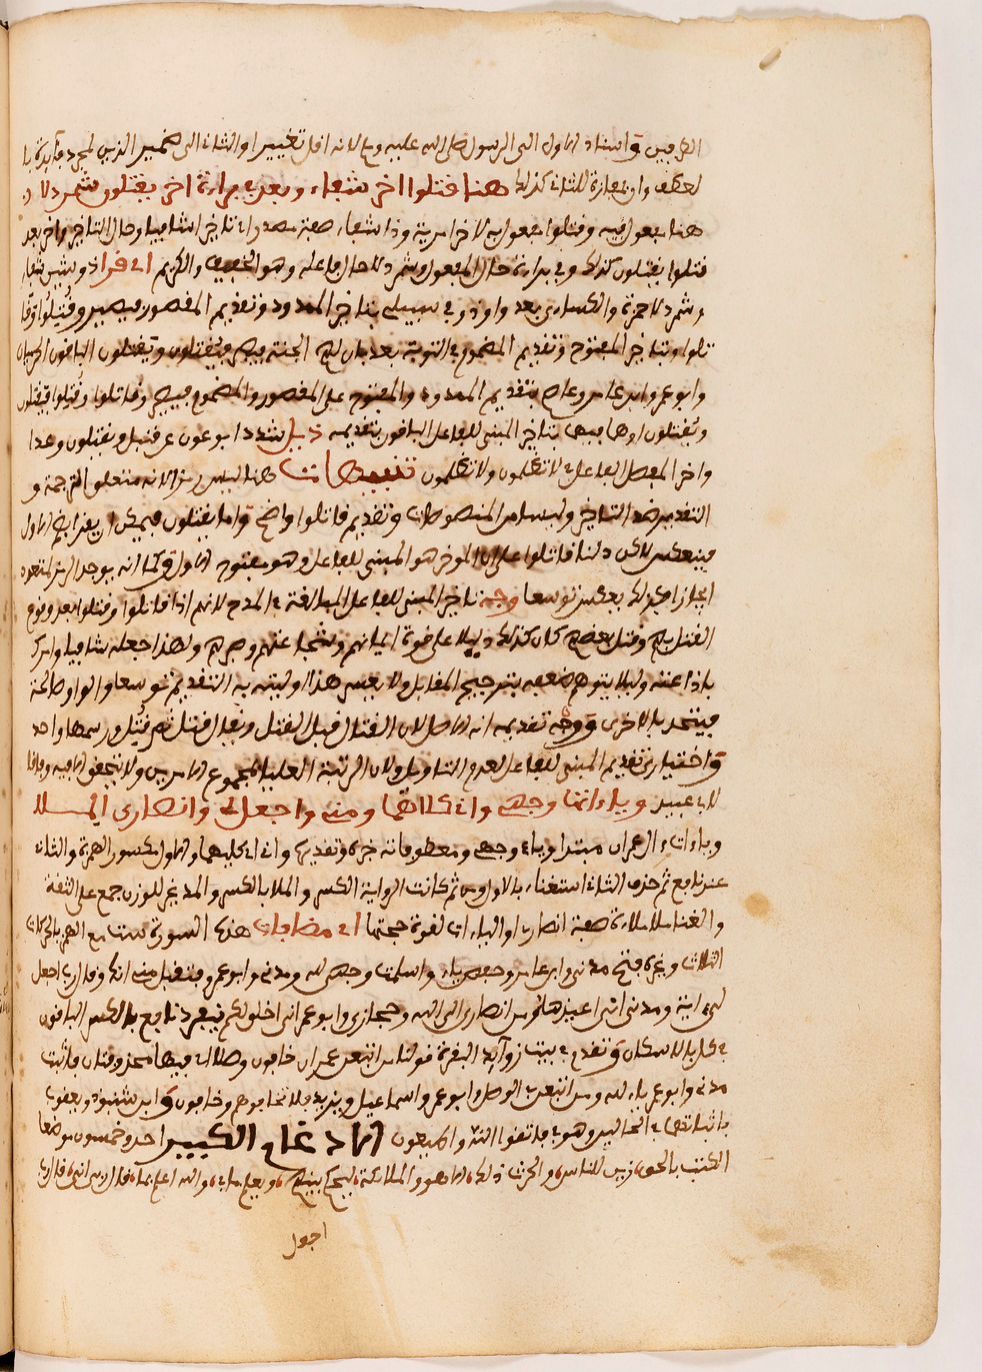 الطرفين واسناد الاول الى الرسول صلى الله عليه وسلم لانه اقل تغييرا والثانى الى ضمير الذين لمجرد
لعطف وان بعازة للثانى كذلك هنا قتلوا اخر شفاء وبعد فى براءة اخر يقتلون شمردلا
هنا مفعول فيه وقتلوا مفعول به لاخر امرية وذا شفاء صفة مصدر اى تاخيرا شافيا وحال التاخير واخر بعد
قتلوا يقتلون كذلك وفى براءة حال المفعول وشمردلا حال فاعله وهو الخفيف والكريم اى قرا ذو شين شفاء
وشمردلا حمزة والكسائى بعد واوذوا فى سبيلى بتاخير الممدود وتقديم المقصور فيصير وقتلوا وقا
تلوا وبتاخير المفتوح وتقديم المضموم فى التوبة بعد بان لهم الجنة فيصير فيقتلون ويقتلون الباقون الحرميان
وابو عمرو وابن عامر وعاصم بتقديم الممدود والمفتوح على المقصور والمضموم فيصير وقاتلوا وقتلوا فيقتلون
ويقتلون اوهما فيهما بتاخير المبنى للفاعل الباقون بتقديمه ذيل شدد ابو عون عن قنبل ويقتلون وعدا
واخر المفضل الفاعل فى لا تظلمون ولا تظلمون تنبيهات هنا ليس رمزا لانه متعلق الترجمة و
التقديم ضد التاخير وليسا من المنصوصات وتقديم قاتلوا واضح واما يقتلون فيمكن ان يقرا بضم الاول
فينعكس لاكن دلنا قاتلوا على ان الموخر هو المبنى للفاعل وهو مفتوح الاول وكما انه يوجد الرمز لمتعدد
اجاز افكذلك بعكس توسعا وجه تاخير المبنى للفاعل المبالغة فى المدح لانهم اذا قاتلوا وقتلوا بعد وقوع
القتل بهم وقتل بعضهم كان كذلك دليلا على قوة ايمانهم وشجاعتهم وصبرهم ولهذا جعله شافيا وامرك
باذاعته وليلا يتوهم ضعفه بترجيح المقابل ولا يعسر هذا اوليته به التقديم توسعا والواو صالحة
فيتحد بالاخرى ووجه تقديمه انه الاصل لان القتال قبل القتل ويقال قتل ثم قتل ورسمها واحد
واختيارى تقديم المبنى للفاعل لعدم التاويل ولان الرتبة العليا لمجموع الامرين ولا يتحقق الا فيه وفاقا
لابى عبيد وياءاتها وجهى وانى كلاهما ومنى واجعل لى وانصارى الملا
وياءات ال عمران مبتدا وياء وجهى ومعطوفاته خبره وتقديرها وانى انى كليهما والاول مكسور الهمزة والثانى
عند نافع ثم حذف الثانى استغناء بالاول ومن ثم كانت الرواية الكسر والملا بالكسر والمد فخفف للوزن جمع على الثقة
والغنا ملا ملاءة صفة انصارى او الياءات لقوة حجتها اى مضافات هذه السورة ست مع الهمز بالحركات
الثلاث وغيره بفتح مدنى وابن عامر وحفص ياء واسلمت وجهى لله ومدنى وابو عمرو فتقبل منى انك وقال رب اجعل
لى ءاية ومدنى انى اعيذها ومن انصارى الى الله وحجازى وابو عمرو انى اخلق لكم فيفرد نافع بالكسر الباقون
فى كل بالاسكان وتقدم فى بيت زوائد البقرة قولنا من اتبعن عمران خافون وصلا اى فيها محذوفتان فاثبت
مدنى وابو عمرو ياء لله ومن اتبعن فى الوصل وابو عمرو واسماعيل ويزيد فلا تخافوهم وخافون وابن شنبوذ ويعقوب
باثباتهما فى الحالين وهو فى فاتقوا الله واطيعون الادغام الكبير احد وخمسون موضعا
الكتب بالحق، زين للناس، والحرث ذلك، الا هو والملائكة، ليحكم بينهم، ويعلم ما فى، والله اعلم بما، قال رب انى، قال رب
اجعل